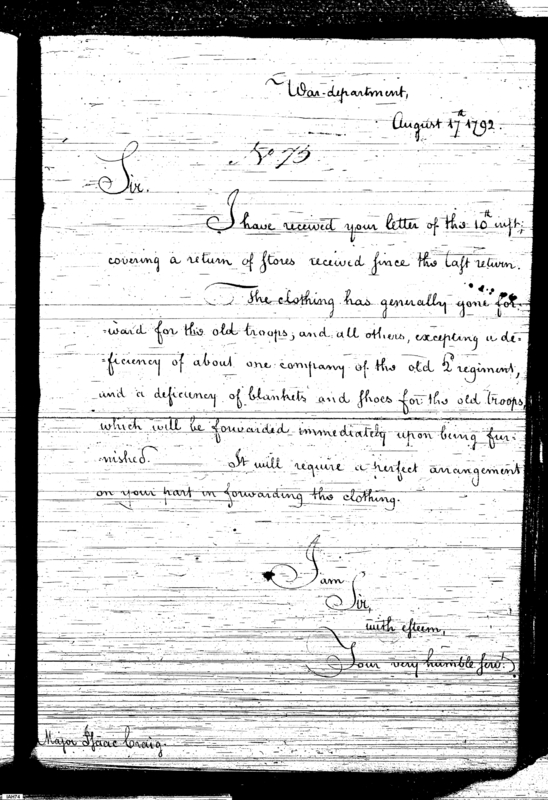 War-department,
August 17th 1792.
No 75
Sir.
I have received your letter of the 10th inst;
covering a return of stores received since the last return.
The clothing has generally gone for-
-ward for the old troops, and all others, excepting a de-
-ficiency of about one company of the old 2d regiment,
and a deficiency of blankets and shoes for the old troops,
which will be forwarded immediately upon being fur-
-nished. It will require a perfect arrangement
on your part in forwarding the clothing.
I am
Sir,
with esteem,
Your very humble servt.
Major Isaac Craig.